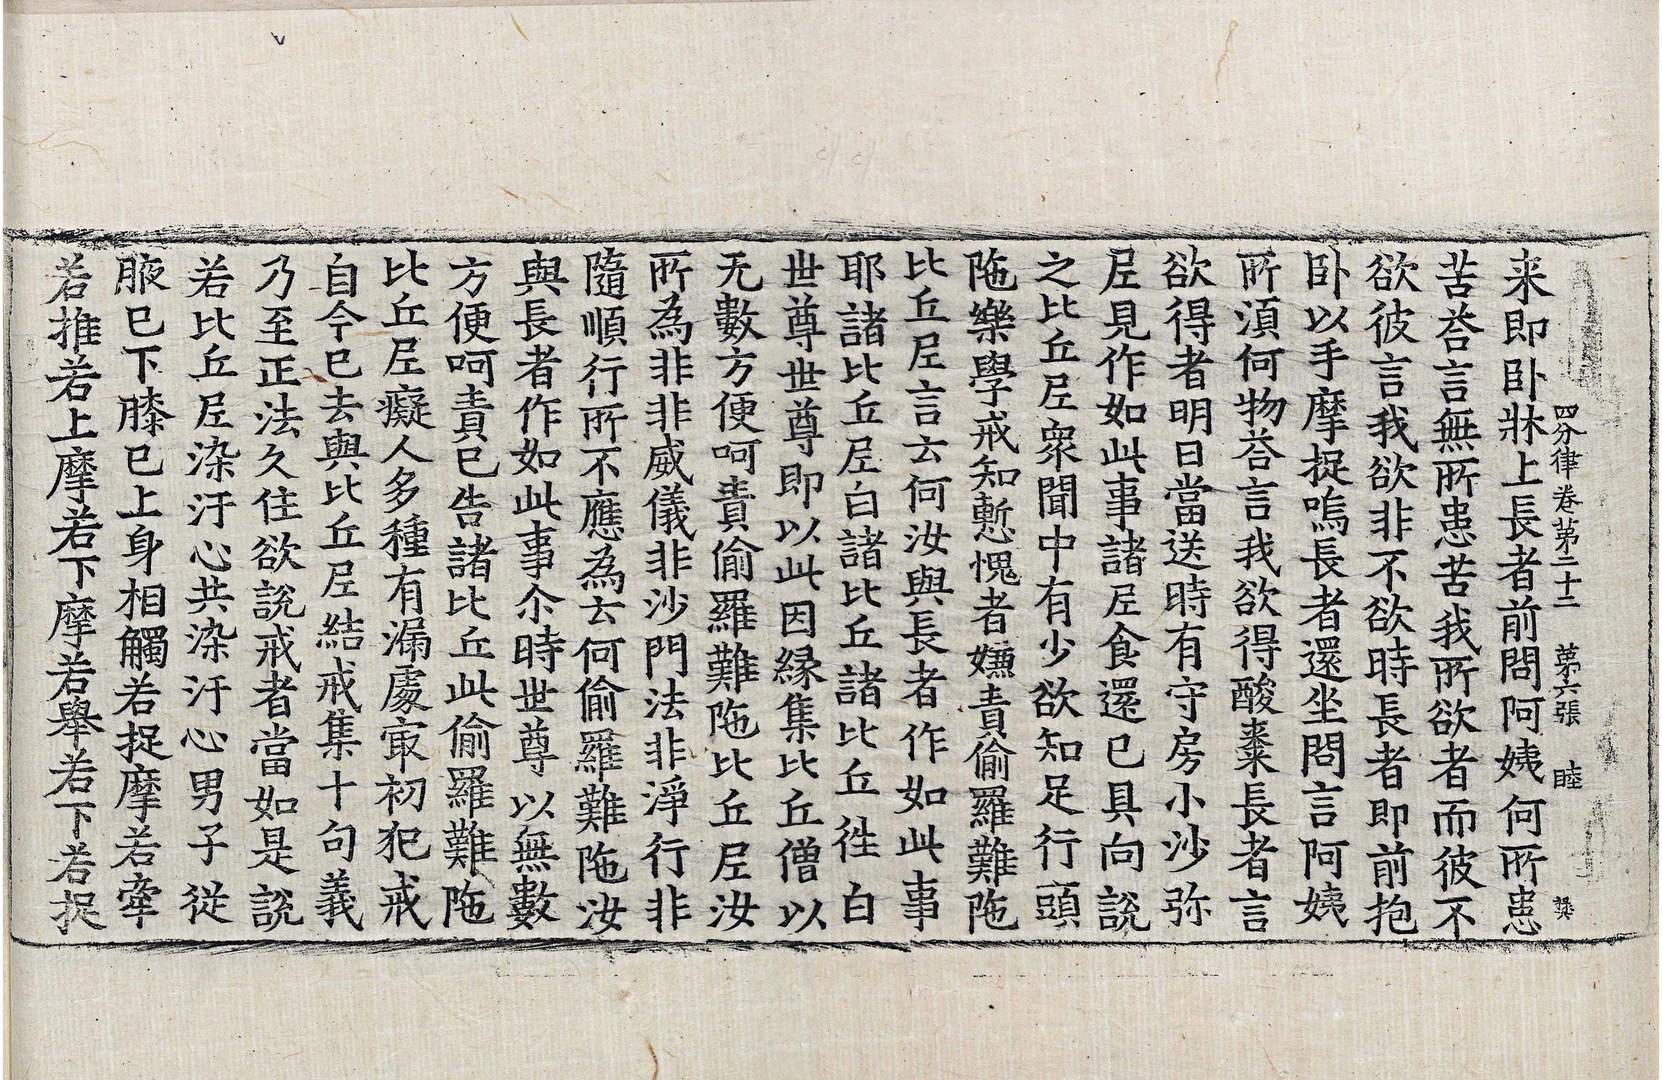 四分律卷苐二十二 苐六張 睦 龔
来即卧牀上長者前問阿姨何所患
苦荅言無所患苦我所欲者而彼不
欲彼言我欲非不欲時長者即前抱
卧以手摩捉嗚長者還坐問言阿姨
所湏何物荅言我欲得酸棗長者言
欲得者明日當送時有守房小沙弥
尼見作如此事諸尼食還已具向說
之比丘尼衆聞中有少欲知足行頭
陁樂學戒知慙愧者嫌責偷羅難陁
比丘尼言云何汝與長者作如此事
耶諸比丘尼白諸比丘諸比丘徃白
世尊世尊即以此因縁集比丘僧以
无數方便呵責偷羅難陁比丘尼汝
所為非非威儀非沙門法非淨行非
隨順行所不應為云何偷羅難陁汝
與長者作如此事尒時世尊以無數
方便呵責已告諸比丘此偷羅難陁
比丘尼癡人多種有漏處㝡初犯戒
自今已去與比丘尼結戒集十句義
乃至正法久住欲說戒者當如是說
若比丘尼染汙心共染汙心男子從
腋已下膝已上身相觸若捉摩若牽
若推若上摩若下摩若舉若下若捉